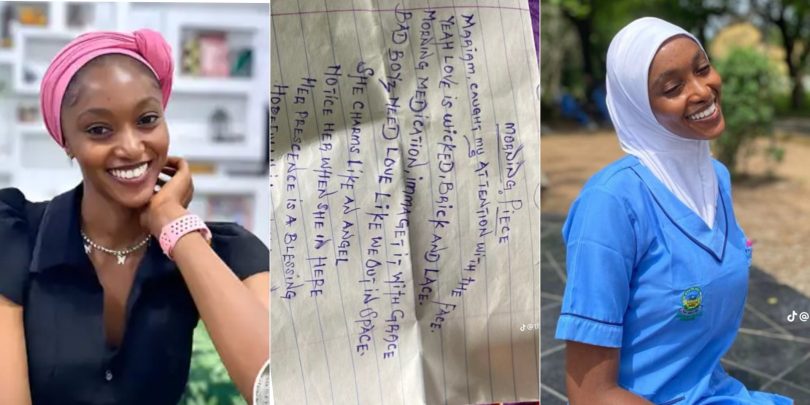 MORNING PIECE
MARIAM, CAUGHT MY ATTENTION WITH THE FACE.
YEAH LOVE IS WICKED, BRICK AND LACE.
MORNING MEDICATION, IMMA GET IT WITH GRACE
BAD BOYZ NEED LOVE LIKE WE OUT IN SPACE.
SHE CHARMS LIKE AN ANGEL
NOTICE HER, WHEN SHE IN HERE
HER PRESCENCE IS A BLESSING